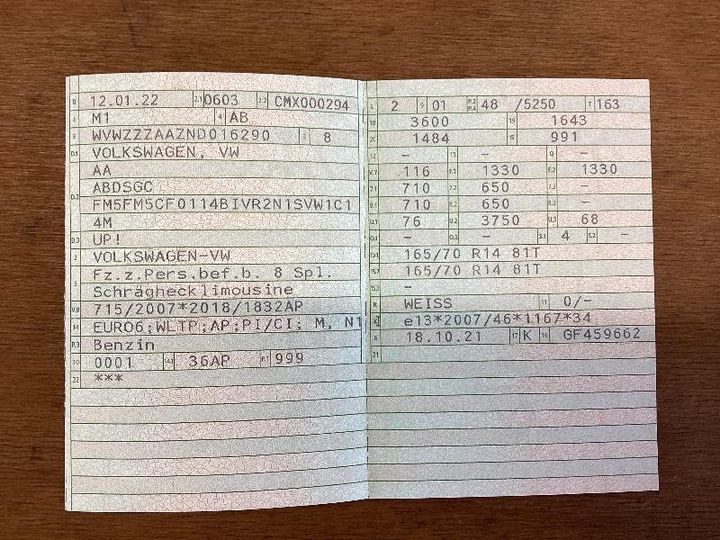 B 12.01.22 2.1 0603 2.2 CMX000294
J M1 4 AB
E WVWZZZAAZND016290 3 8
D.1 VOLKSWAGEN, VW
AA
D.2 ABDSGC
FM5FM5CF0114BIVR2N1SVW1C1
4M
D.3 UP!
2 VOLKSWAGEN-VW
5 Fz.z.Pers.bef.b. 8 Spl.
Schräghecklimousine
V.9 715/2007*2018/1832AP
14 EURO6;WLTP;AP;PI/CI; M, N1
P.3 Benzin
10 0001 14.1 36AP P.1 999
22 ***
L 2 9 01 P.2 P.4 48 /5250 T 163
18 3600 19 1643
20 1484 G 991
12 – 13 – Q –
V.7 116 F.1 1330 F.2 1330
7.1 710 7.2 650 7.3 –
8.1 710 8.2 650 8.3 –
U.1 76 U.2 3750 U.3 68
O.1 – O.2 – S.1 4 S.2 –
15.1 165/70 R14 81T
15.2 165/70 R14 81T
15.3 –
R WEISS 11 0/–
K e13*2007/46*1167*34
6 18.10.21 17 K 16 GF459662
21